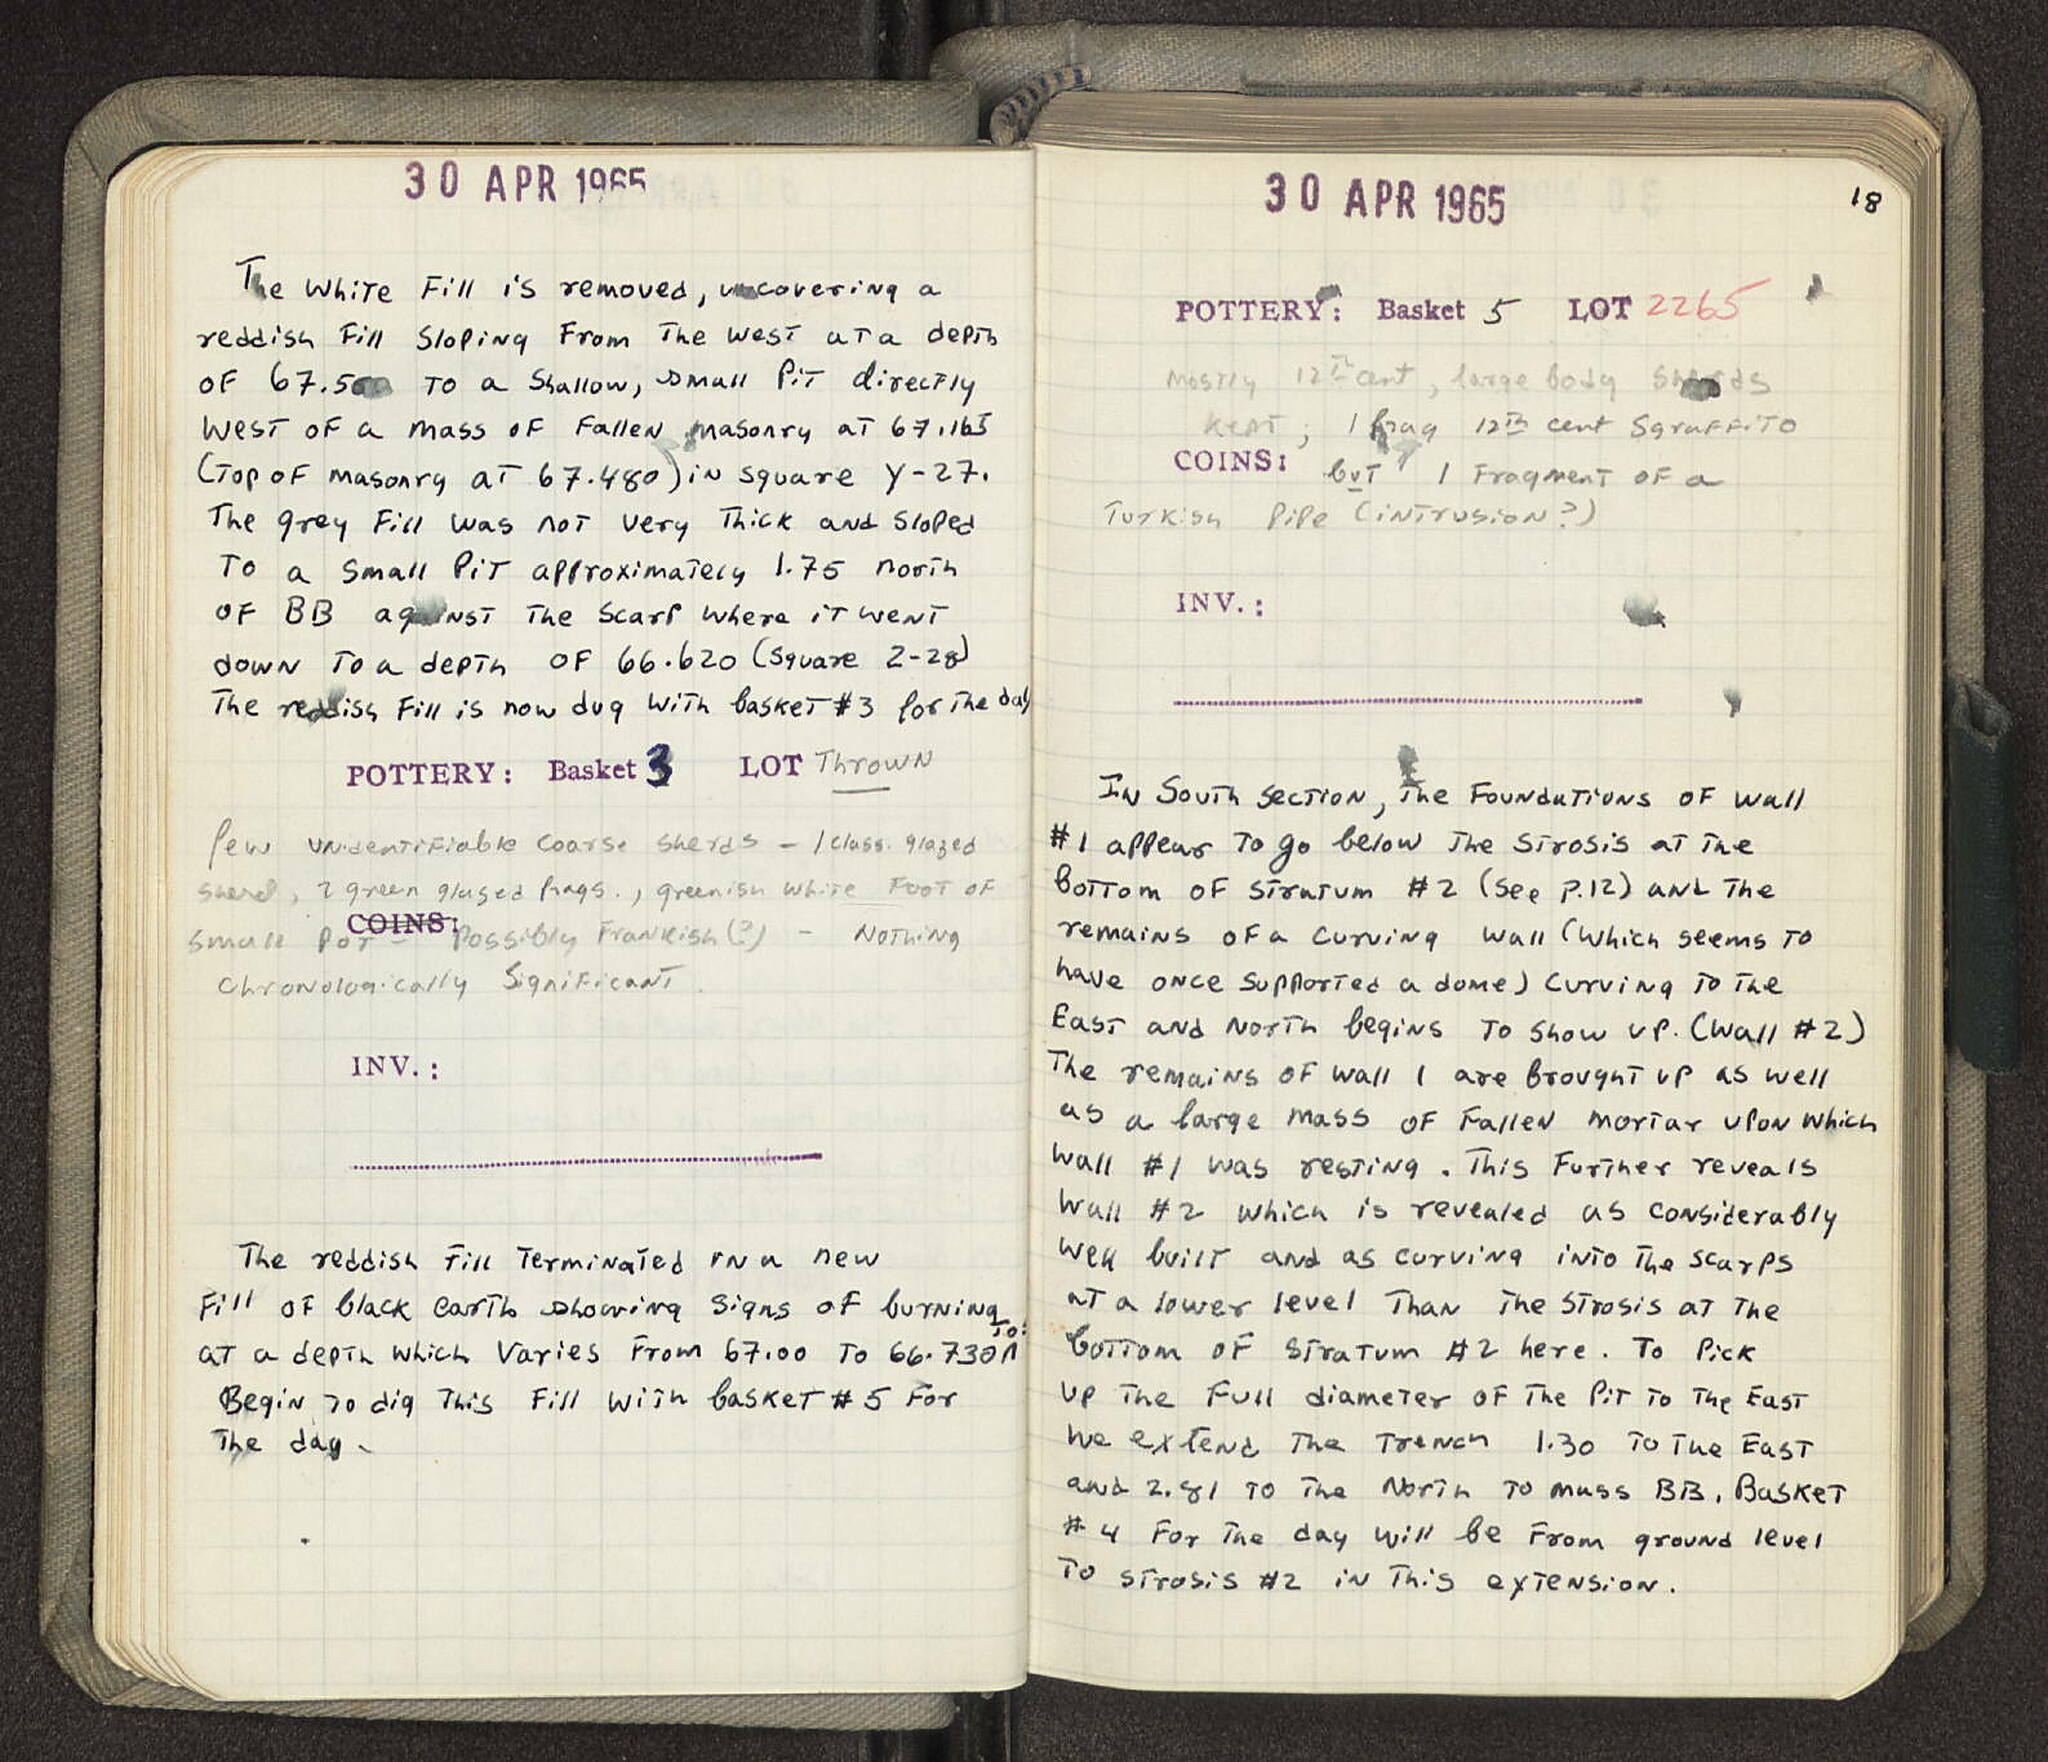 30 APR 1965
The White Fill is removed, uncovering a
reddish Fill Sloping From The West at a depth
OF 67.500 TO a Shallow, small Pit directly
West OF a mass OF Fallen masonry at 67.165
(Top OF masonry at 67.480) in square Y-27.
The grey Fill was not very Thick and Sloped
To a Small Pit approximately 1.75 north
OF BB against The Scarp where it went
down To a depth OF 66.620 (Square Z-28)
The reddish Fill is now dug With basket #3 for The day
POTTERY: Basket 3 LOT Thrown
few unidentifiable coarse sherds - 1 class. glazed
sherd, 2 green glazed frags., greenish white Foot OF
COINS:
small Pot - Possibly Frankish (?) - Nothing
chronologically Significant.
INV.:
The reddish Fill Terminated in a new
Fill OF black earth showing Signs OF burning
at a depth which Varies From 67.00 To 66.730
Begin To dig This Fill With basket #5 For
The day.
30 APR 1965
18
POTTERY: Basket 5 LOT 2265
Mostly 12Th cent, large body sherds
kept; 1 frag 12Th cent Sgraffito
COINS:
but 1 Fragment OF a
Turkish Pipe (intrusion?)
INV.:
In South Section, The Foundations OF Wall
#1 appear To go below The Strosis at The
bottom OF Stratum #2 (See P.12) and The
remains OF a curving Wall (Which seems To
have once supported a dome) Curving To The
East and North begins To Show up. (Wall #2)
The remains OF Wall 1 are brought up as well
as a large mass OF Fallen mortar upon which
Wall #1 was resting. This Further reveals
Wall #2 which is revealed as considerably
well built and as curving into The scarps
at a lower level Than The Strosis at The
bottom OF Stratum #2 here. To Pick
up The Full diameter OF The Pit To The East
We extend The Trench 1.30 To The East
and 2.81 To The North To mass BB. Basket
#4 For The day will be From ground level
To strosis #2 in This extension.